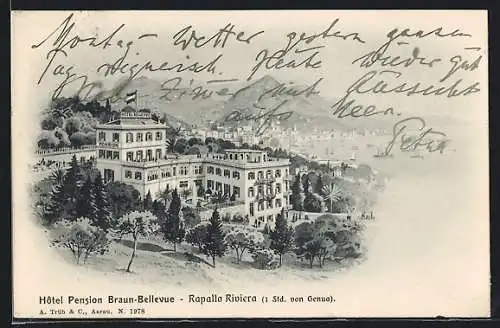 Montag - Wetter gestern ganzen
Tag regnerisch. Heute wieder gut
Zimmer mit Aussicht
aufs Meer.
HOTEL BELLEVUE
Hôtel Pension Braun-Bellevue - Rapallo Riviera (1 Std. von Genua).
A. Trüb & C., Aarau. N. 1978